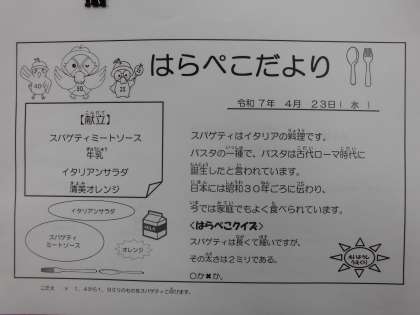 はらぺこだより
令和７年　４月　２３日（　水　）
【献立】
スパゲティミートソース
牛乳
イタリアンサラダ
清美オレンジ
スパゲティはイタリアの料理です。
パスタの一種で、パスタは古代ローマ時代に
誕生したと言われています。
日本には昭和３０年ごろに伝わり、
今では家庭でもよく食べられています。
＜はらぺこクイズ＞
スパゲティは長くて細いですが、
その太さは２ミリである。
○か✖か。
イタリアンサラダ
MILK
スパゲティ
ミートソース
オレンジ